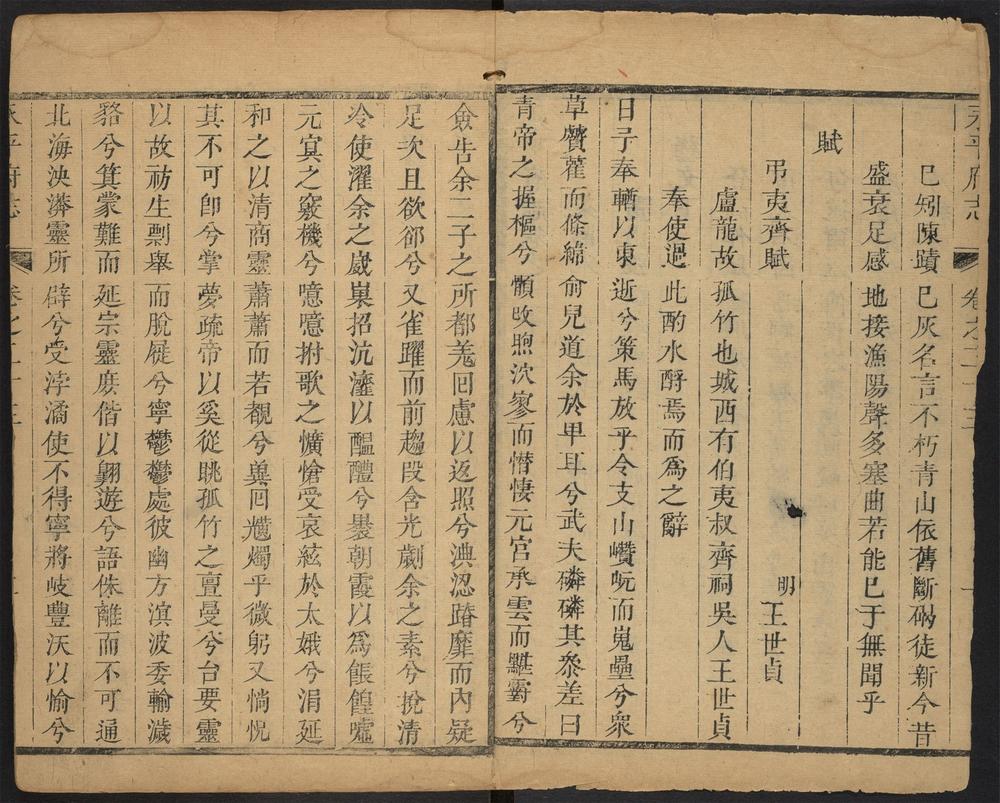 永平府志 卷之二十三
已矧陳蹟已灰名言不朽青山依舊斷碣徒新今昔
盛衰足感地接漁陽聲多塞曲若能已于無聞乎
賦
弔夷齊賦
明 王世貞
盧龍故孤竹也城西有伯夷叔齊祠吳人王世貞
奉使過此酌水酹焉而為之辭
日予奉輶以東逝兮策馬放乎令支山巑岏而嵬壘兮衆
草薋蓷而條綿俞兒道余於甲耳兮武夫磷磷其叅差曰
青帝之握樞兮頫改煦沈寥而憯悽元宮承雲而黮霨兮
僉告余二子之所都羗回慮以返照兮淟涊踏靡而內疑
足次且欲郤兮又雀躍而前趨段含光劌余之素兮挩清
冷使濯余之崴嵬招沆瀣以醖醴兮褁朝霞以為餦餭噓
元冥之竅機兮噫噫拊歌之懭愴受哀絃於太娥兮涓延
和之以清商靈蕭蕭而若覩兮䠂回爌燭乎微躬又惝怳
其不可卽兮掌夢疏帝以奚從眺孤竹之亶曼兮台要靈
以故祊生剽舉而脫屣兮寧鬱鬱處彼幽方濵波委輸濊
貉兮箕蒙難而延宗靈庶偕以翱遊兮語侏離而不可通
北海泱漭靈所辟兮受涬潏使不得寧將岐豐沃以愉兮
永平府志 卷之二十三